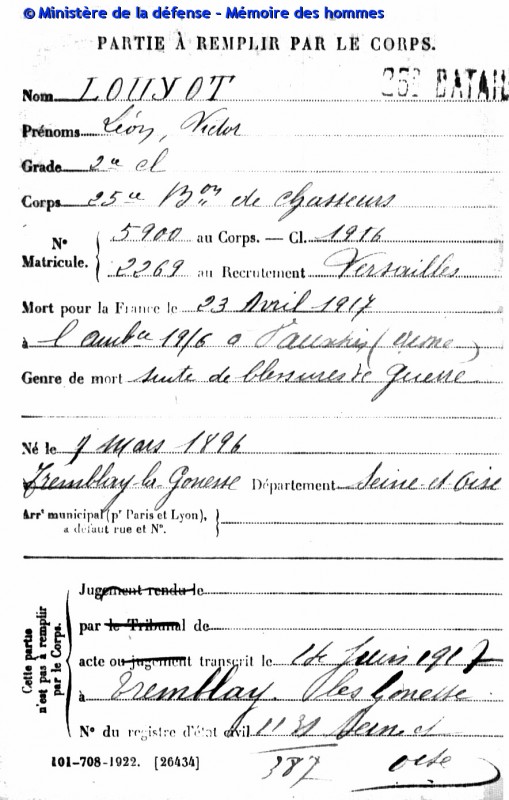 © Ministère de la défense - Mémoire des hommes
PARTIE À REMPLIR PAR LE CORPS.
25E BATAIL
Nom LOUYOT
Prénoms Léon, Victor
Grade 2e cl
Corps 25e Bon de chasseurs
No Matricule. 5900 au Corps. — Cl. 1916
2269 au Recrutement Versailles
Mort pour la France le 23 Avril 1917
à l'ambce 19/6 à (Aisne)
Genre de mort suite de blessures de guerre
Né le 9 mars 1896
Tremblay-les-Gonesse Département Seine-et-Oise
Arrt municipal (pr Paris et Lyon),
à défaut rue et No.
Cette partie n'est pas à remplir par le Corps.
Jugement rendu le
par le Tribunal de
acte ou jugement transcrit le 14 Juin 1917
à Tremblay les Gonesse
No du registre d'état civil Seine et
387 Oise
101-708-1922. [26434]